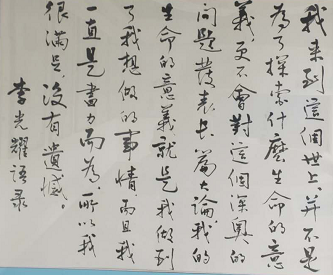 我来到這個世上，并不是
為了探索什麽生命的意
義，更不會對這個深奥的
問題發表長篇大論我的
生命的意義就是我做到
了我想做的事情，而且我
一直是盡力而為，所以我
很滿足，没有遺憾。
李光耀语录